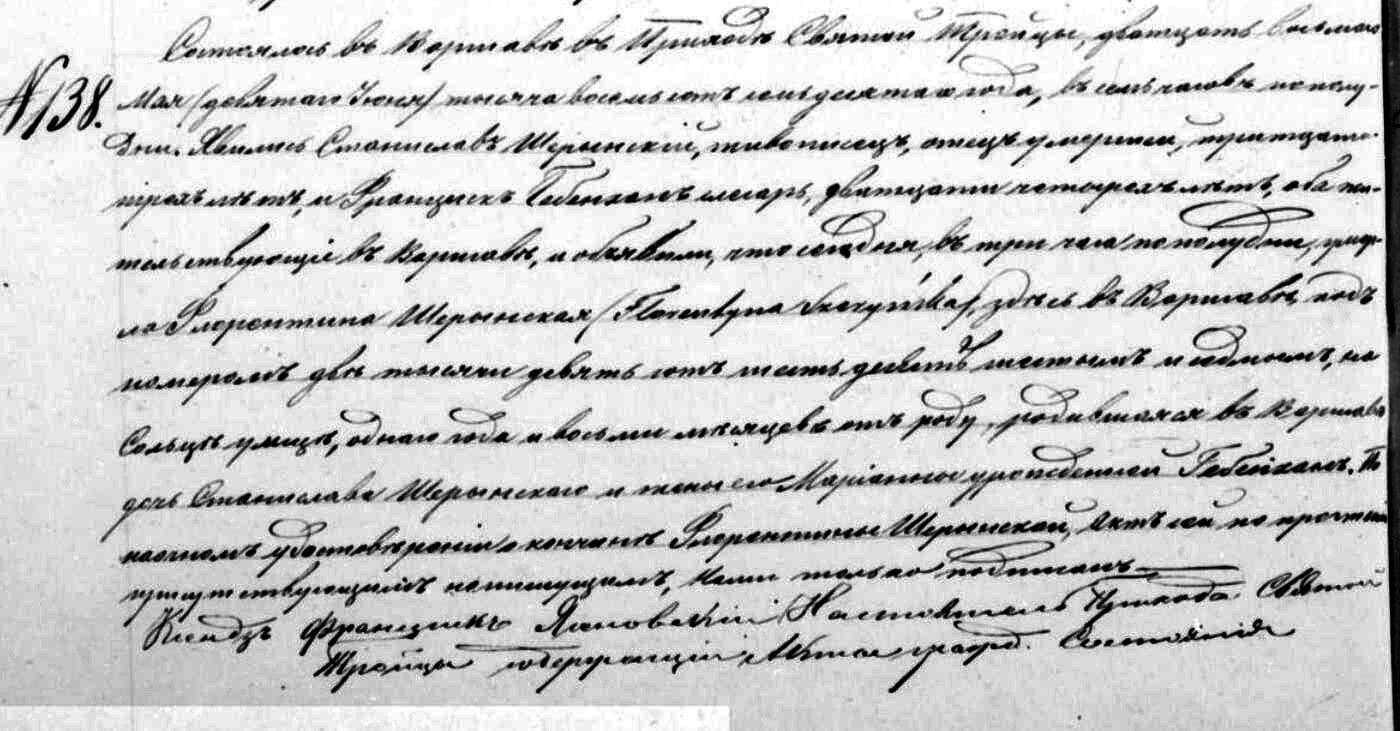 Состоялось въ Варшавѣ въ Приходѣ Святой Тройцы, дватцать восьмаго
№138. Мая (девятаго Іюня) тысяча восемьсотъ семьдесятаго года, въ семь часовъ по полу-
дни. Явились Станиславъ Шерынскій, живописецъ, отецъ умершей, тритцати-
трехъ лѣтъ, и Францыскъ слесарь, дватцати четырехъ лѣтъ, оба жи-
тельствующіе въ Варшавѣ, и объявили, что сегодня, въ три часа по полудни, умер-
ла Флорентина Шерынская (Florentyna Szeryńska), здѣсь въ Варшавѣ, подъ
номеромъ двѣ тысячи девять сотъ шесть десятъ шестымъ и седмымъ, на
Сольцѣ улицѣ, однаго года и восьми мѣсяцевъ отъ роду, родившаяся въ Варшавѣ
дочь Станислава Шерынскаго и жены его Маріанны урожденной. По
наочномъ удостовѣреніи о кончинѣ Флорентины Шерынской, Актъ сей по прочтеніи
присутствующимъ неписьущимъ, Нами только подписанъ
Ксендзъ Францишекъ Яновскій Настоятель Прихода Святой
Тройцы содержащій Акты гражд. Состоянія